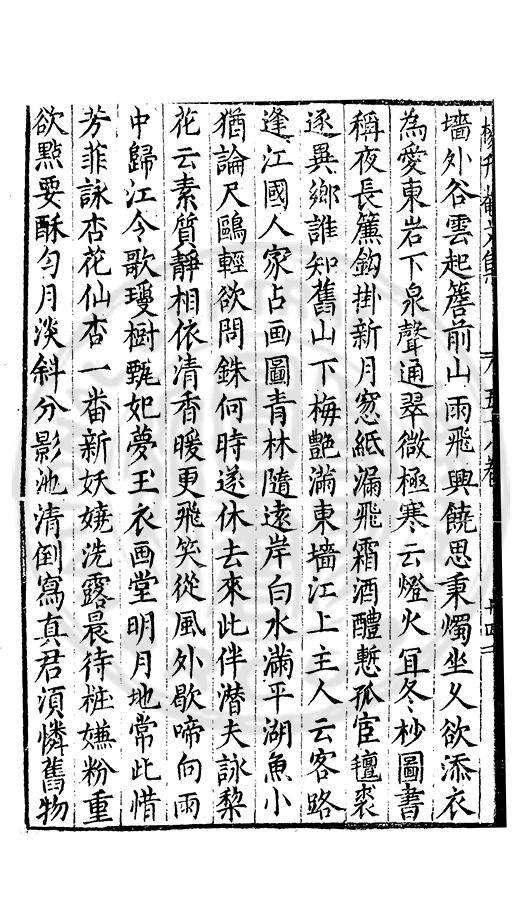 楊升菴文集 卷五十八卷 卅四
墻外谷雲起簷前山雨飛興饒思秉燭坐久欲添衣
為愛東岩下泉聲通翠微極寒云燈火宜冬杪圖書
稱夜長簾鈎掛新月窓紙漏飛霜酒醴慙孤宦氊裘
逐異鄉誰知舊山下梅艷滿東墻江上主人云客路
逢江國人家占画圖青林隨遠岸白水滿平湖魚小
猶論尺鷗輕欲問銖何時遂休去來此伴潜夫詠棃
花云素質靜相依清香暖更飛笑從風外歇啼向雨
中歸江令歌瓊樹甄妃夢玉衣画堂明月地常此惜
芳菲詠杏花仙杏一番新妖嬈洗露晨待粧嫌粉重
欲點要酥勻月淡斜分影池清倒寫真君須憐舊物